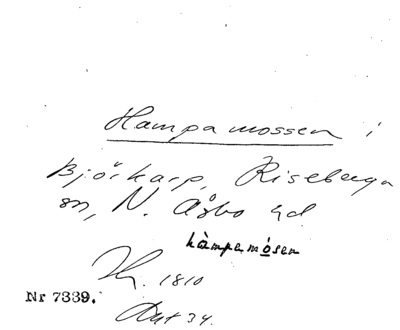 Hampamossen i
Björkarp, Riseberga
sn, N. Åsbo hd
hàmpamósen
1810
Nr 7339.
34.